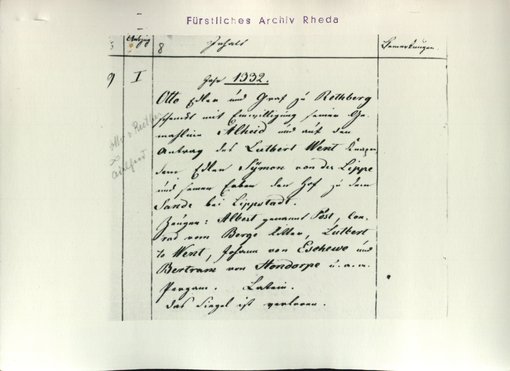 Fürstliches Archiv Rheda
8 Inhalt Bemerkungen
9 I Jahr 1332.
Otto Edler und Graf zu Rethberg
schenkt mit Einwilligung seiner Ge-
mahlin Alheid und auf den
Antrag des Lutbert Went
dem Edlen Sÿmon von der Lippe
und seinen Erben den Hof zu dem
Sande bei Lippstadt.
Zeugen: Albert genannt Post, Con-
rad vom Berge Ritter, Lutbert
to Went, Johann von Eschewe und
Bertram von Hondorpe u.a.m.
Pergam. Latein.
das Siegel ist verloren.